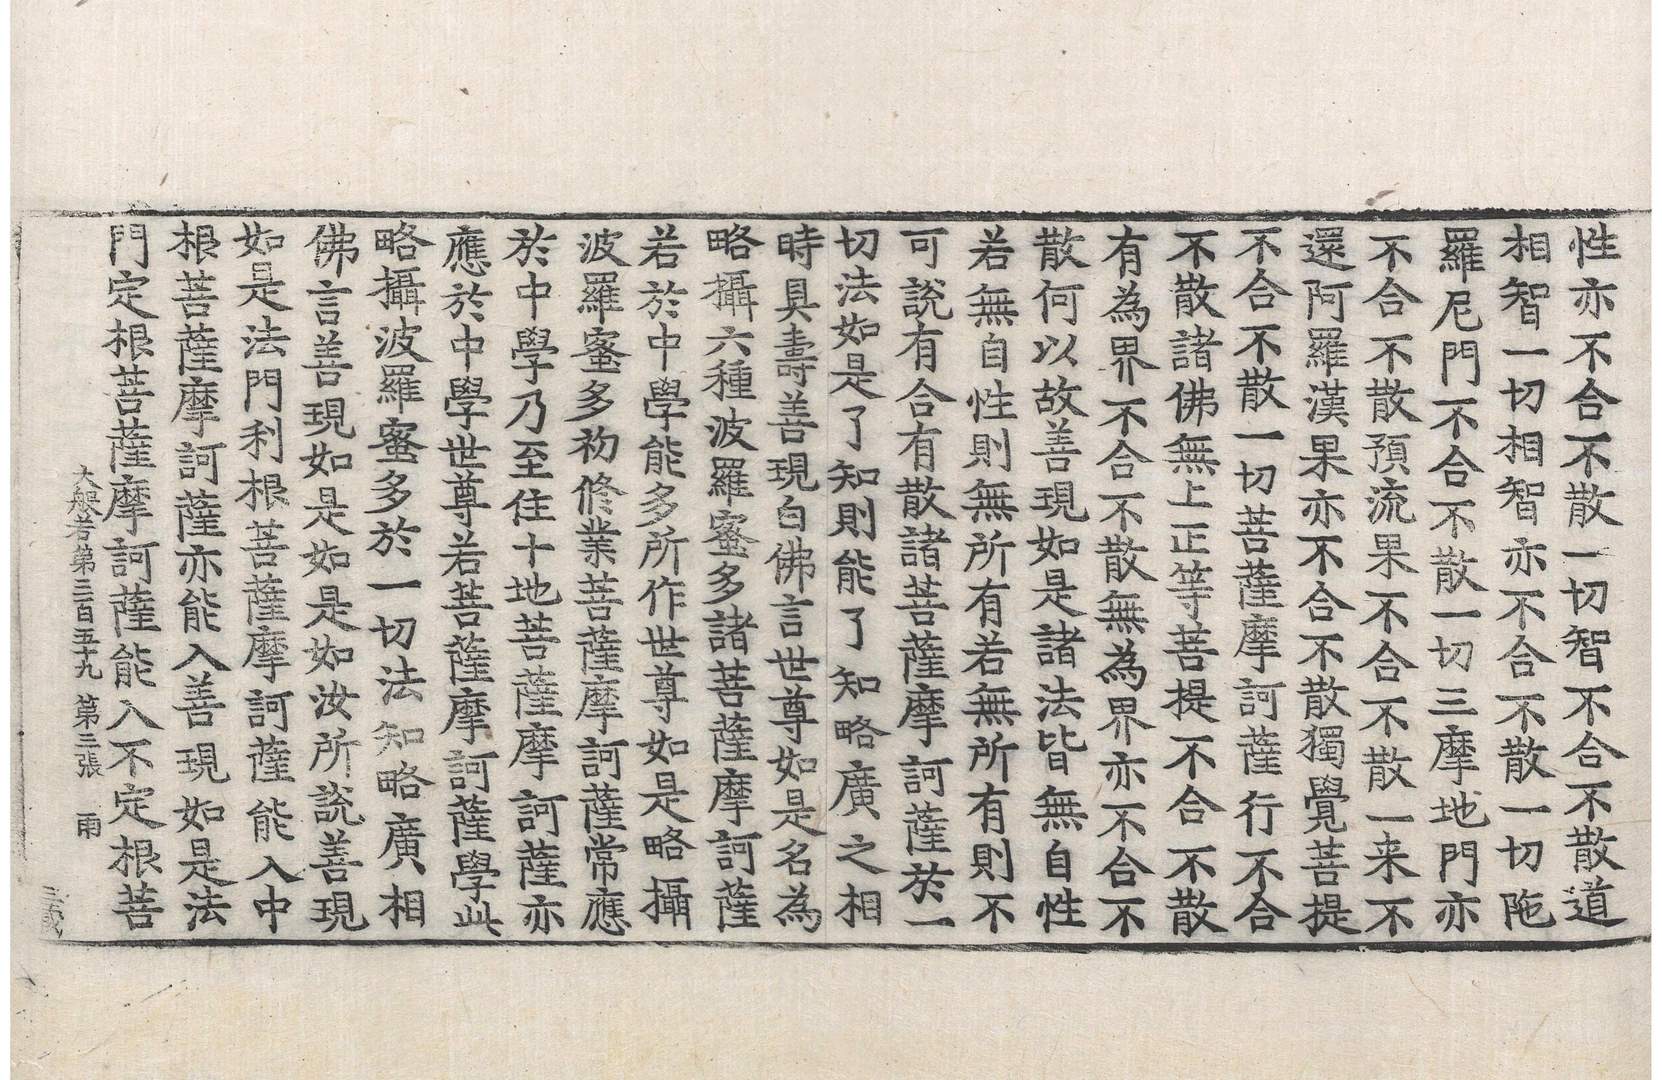 性亦不合不散一切智不合不散道
相智一切相智亦不合不散一切陁
羅尼門不合不散一切三摩地門亦
不合不散預流果不合不散一来不
還阿羅漢果亦不合不散獨覺菩提
不合不散一切菩薩摩訶薩行不合
不散諸佛無上正等菩提不合不散
有為界不合不散無為界亦不合不
散何以故善現如是諸法皆無自性
若無自性則無所有若無所有則不
可說有合有散諸菩薩摩訶薩於一
切法如是了知則能了知略廣之相
時具壽善現白佛言世尊如是名為
略攝六種波羅蜜多諸菩薩摩訶薩
若於中學能多所作世尊如是略攝
波羅蜜多初修業菩薩摩訶薩常應
於中學乃至住十地菩薩摩訶薩亦
應於中學世尊若菩薩摩訶薩學此
略攝波羅蜜多於一切法知略廣相
佛言善現如是如是如汝所說善現
如是法門利根菩薩摩訶薩能入中
根菩薩摩訶薩亦能入善現如是法
門定根菩薩摩訶薩能入不定根菩
大般若第三百五十九 第三張 雨